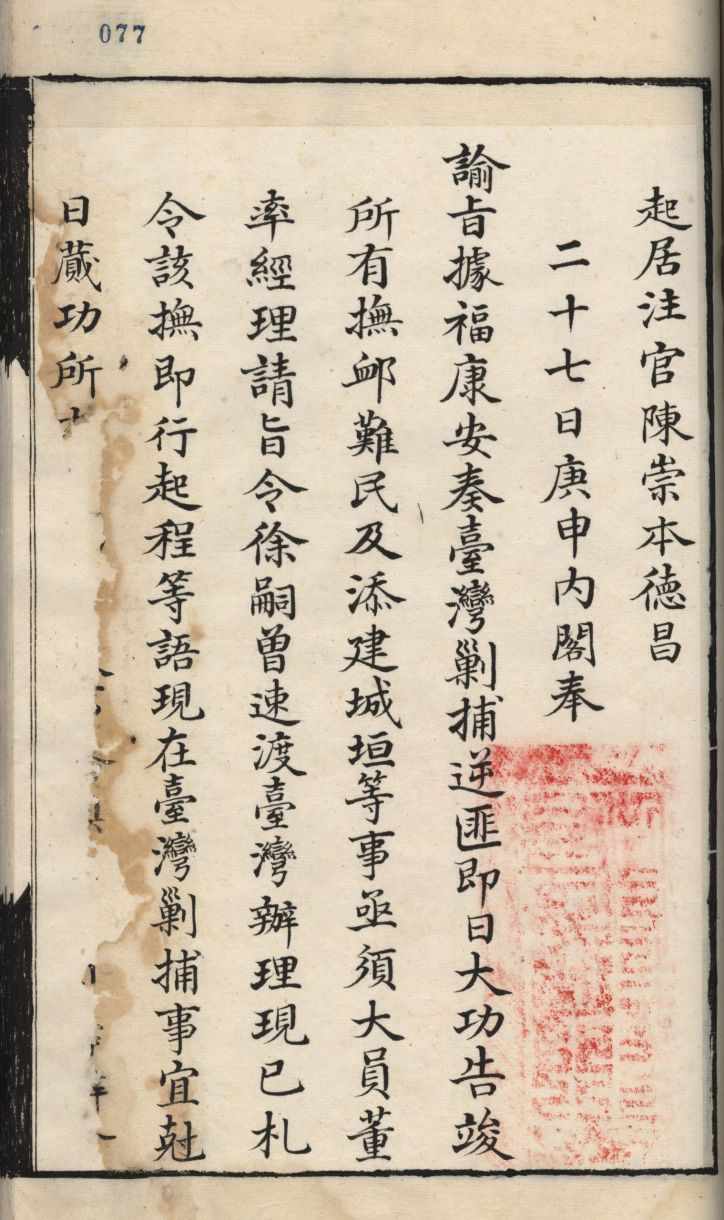 077
起居注官陳崇本德昌
二十七日庚申內閣奉
諭旨據福康安奏臺灣剿捕逆匪即日大功告竣
所有撫卹難民及添建城垣等事亟須大員董
率經理請旨令徐嗣曾速渡臺灣辦理現已札
令該撫即行起程等語現在臺灣剿捕事宜尅
日蕆功所